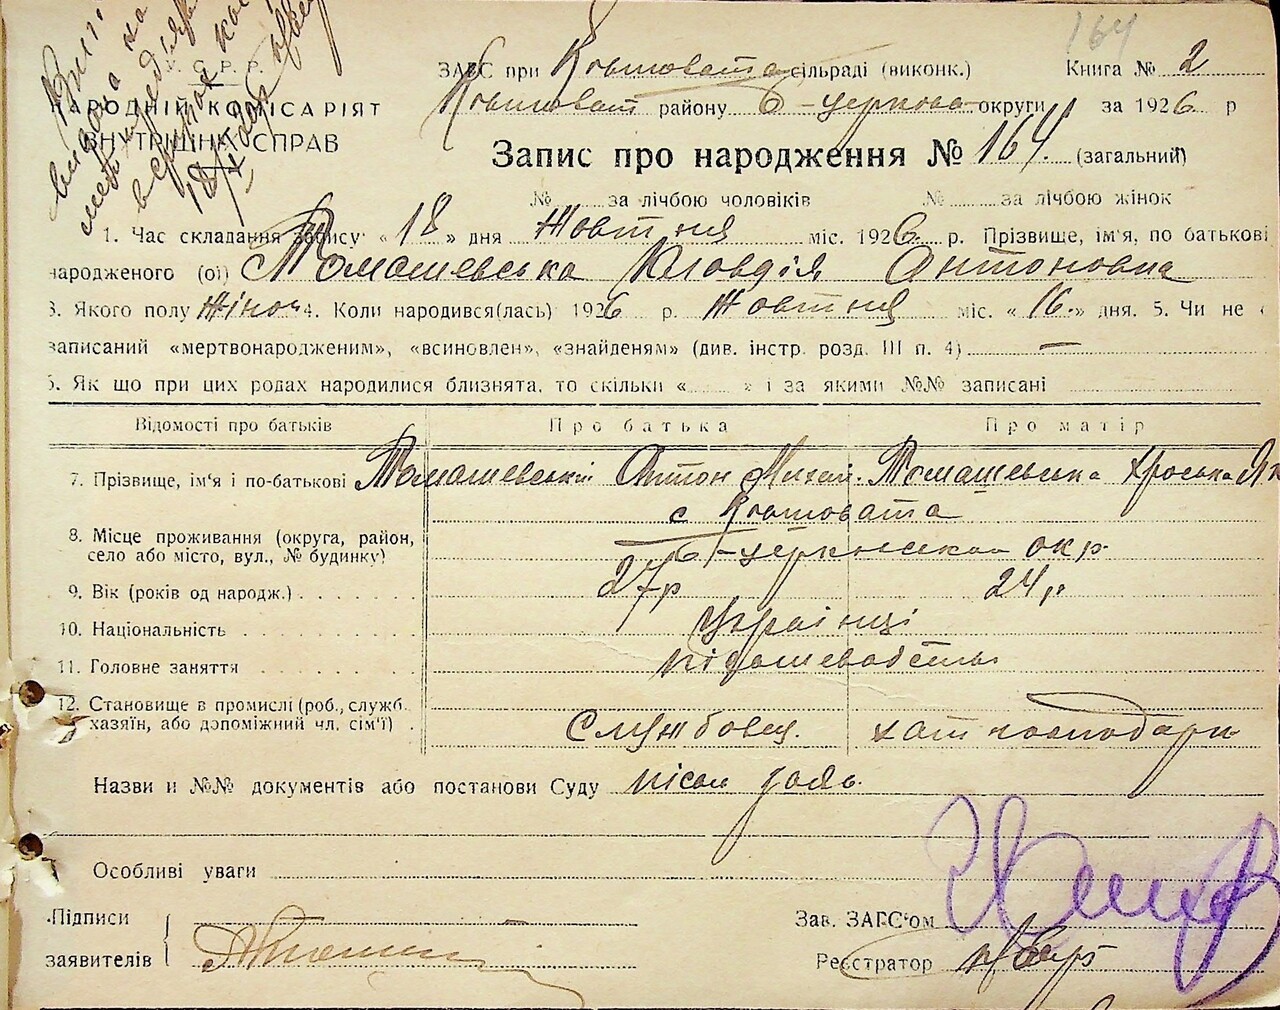 164
У. С. Р. Р.
НАРОДНІЙ КОМІСАРІЯТ
ВНУТРІШНІХ СПРАВ
ЗАГС при Ковшовата сільраді (виконк.) Книга № 2
Ковшоват району Б-церково округи за 1926 р
Запис про народження № 164. (загальний)
№ за лічбою чоловіків № за лічбою жінок
1. Час складання запису „18" дня Жовтня міс. 1926 р. Прізвище, ім'я, по батькові
народженого (ої) Томашевська Кловдія Антоновна
3. Якого полу жіноч 4. Коли народився(лась) 1926 р. Жовтня міс. „16." дня. 5. Чи не
записаний «мертвонародженим», «всиновлен», «знайденям» (див. інстр. розд. III п. 4) —
6. Як що при цих родах народилися близнята, то скільки « » і за якими №№ записані
Відомості про батьків Про батька Про матір
7. Прізвище, ім'я і по-батькові Томашевський Антон Михай. Томашевська Хроська Як
с Ковшовата
8. Місце проживання (округа, район,
село або місто, вул., № будинку) Б-церкнскои окр.
9. Вік (років од народж.) 27р 24р
10. Національність Українці
11. Головне заняття
12. Становище в промислі (роб., служб.
хазяїн, або допоміжний чл. сім'ї) Службовец. хат господарк
Назви и №№ документів або постанови Суду
Особливі уваги
Підписи
заявителів
Зав. ЗАГС'ом
Реєстратор